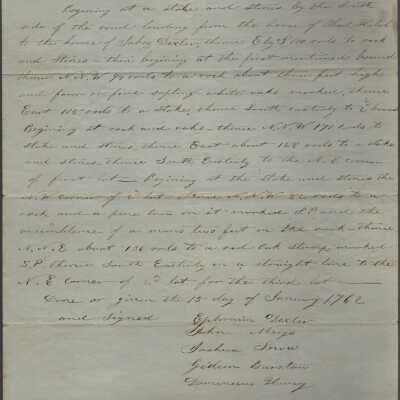 Begining at a stake and stones by the South
side of the road leading from the house of
to the house of Jabez Dexter, thence Ely S 110 rods to rock
and Stones - then begining at the first mentioned bound
thence N.N.W 90 rods to a rock about three feet high
and four or five sapling white oaks marked, thence
East 118 rods to a Stake, thence South easterly to bound
Begining at rock and oaks thence N.N.W rods to
stake and stones thence East about 128 rods to a stake
and stones, thence South Easterly to the N.E corner
of first lot — Begining at the stake and stones the
N.W corner of 2 lot thence N.N.W rods to a
rock and a pine tree on it marked S.P. and the
resemblance of a mans two feet on the rock thence
N.N.E about 136 rods to a red Oak Stump marked
S.P. thence South Easterly on a straight line to the
N.E corner of 2d lot for the third lot —
Done or given the 15 day of January 1762
and Signed Ephraim Dexter
John Meigs
Joshua
Gideon